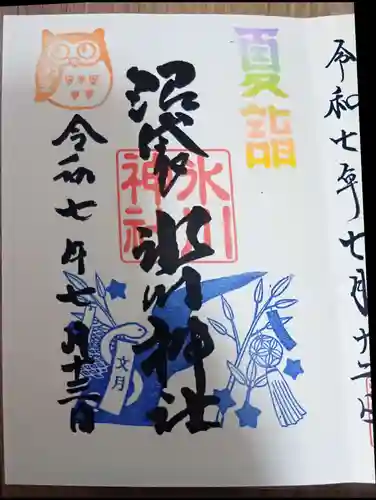 夏詣
沼袋氷川神社
氷川神社
令和七年七月十三日
文月
令和七年七月十二日